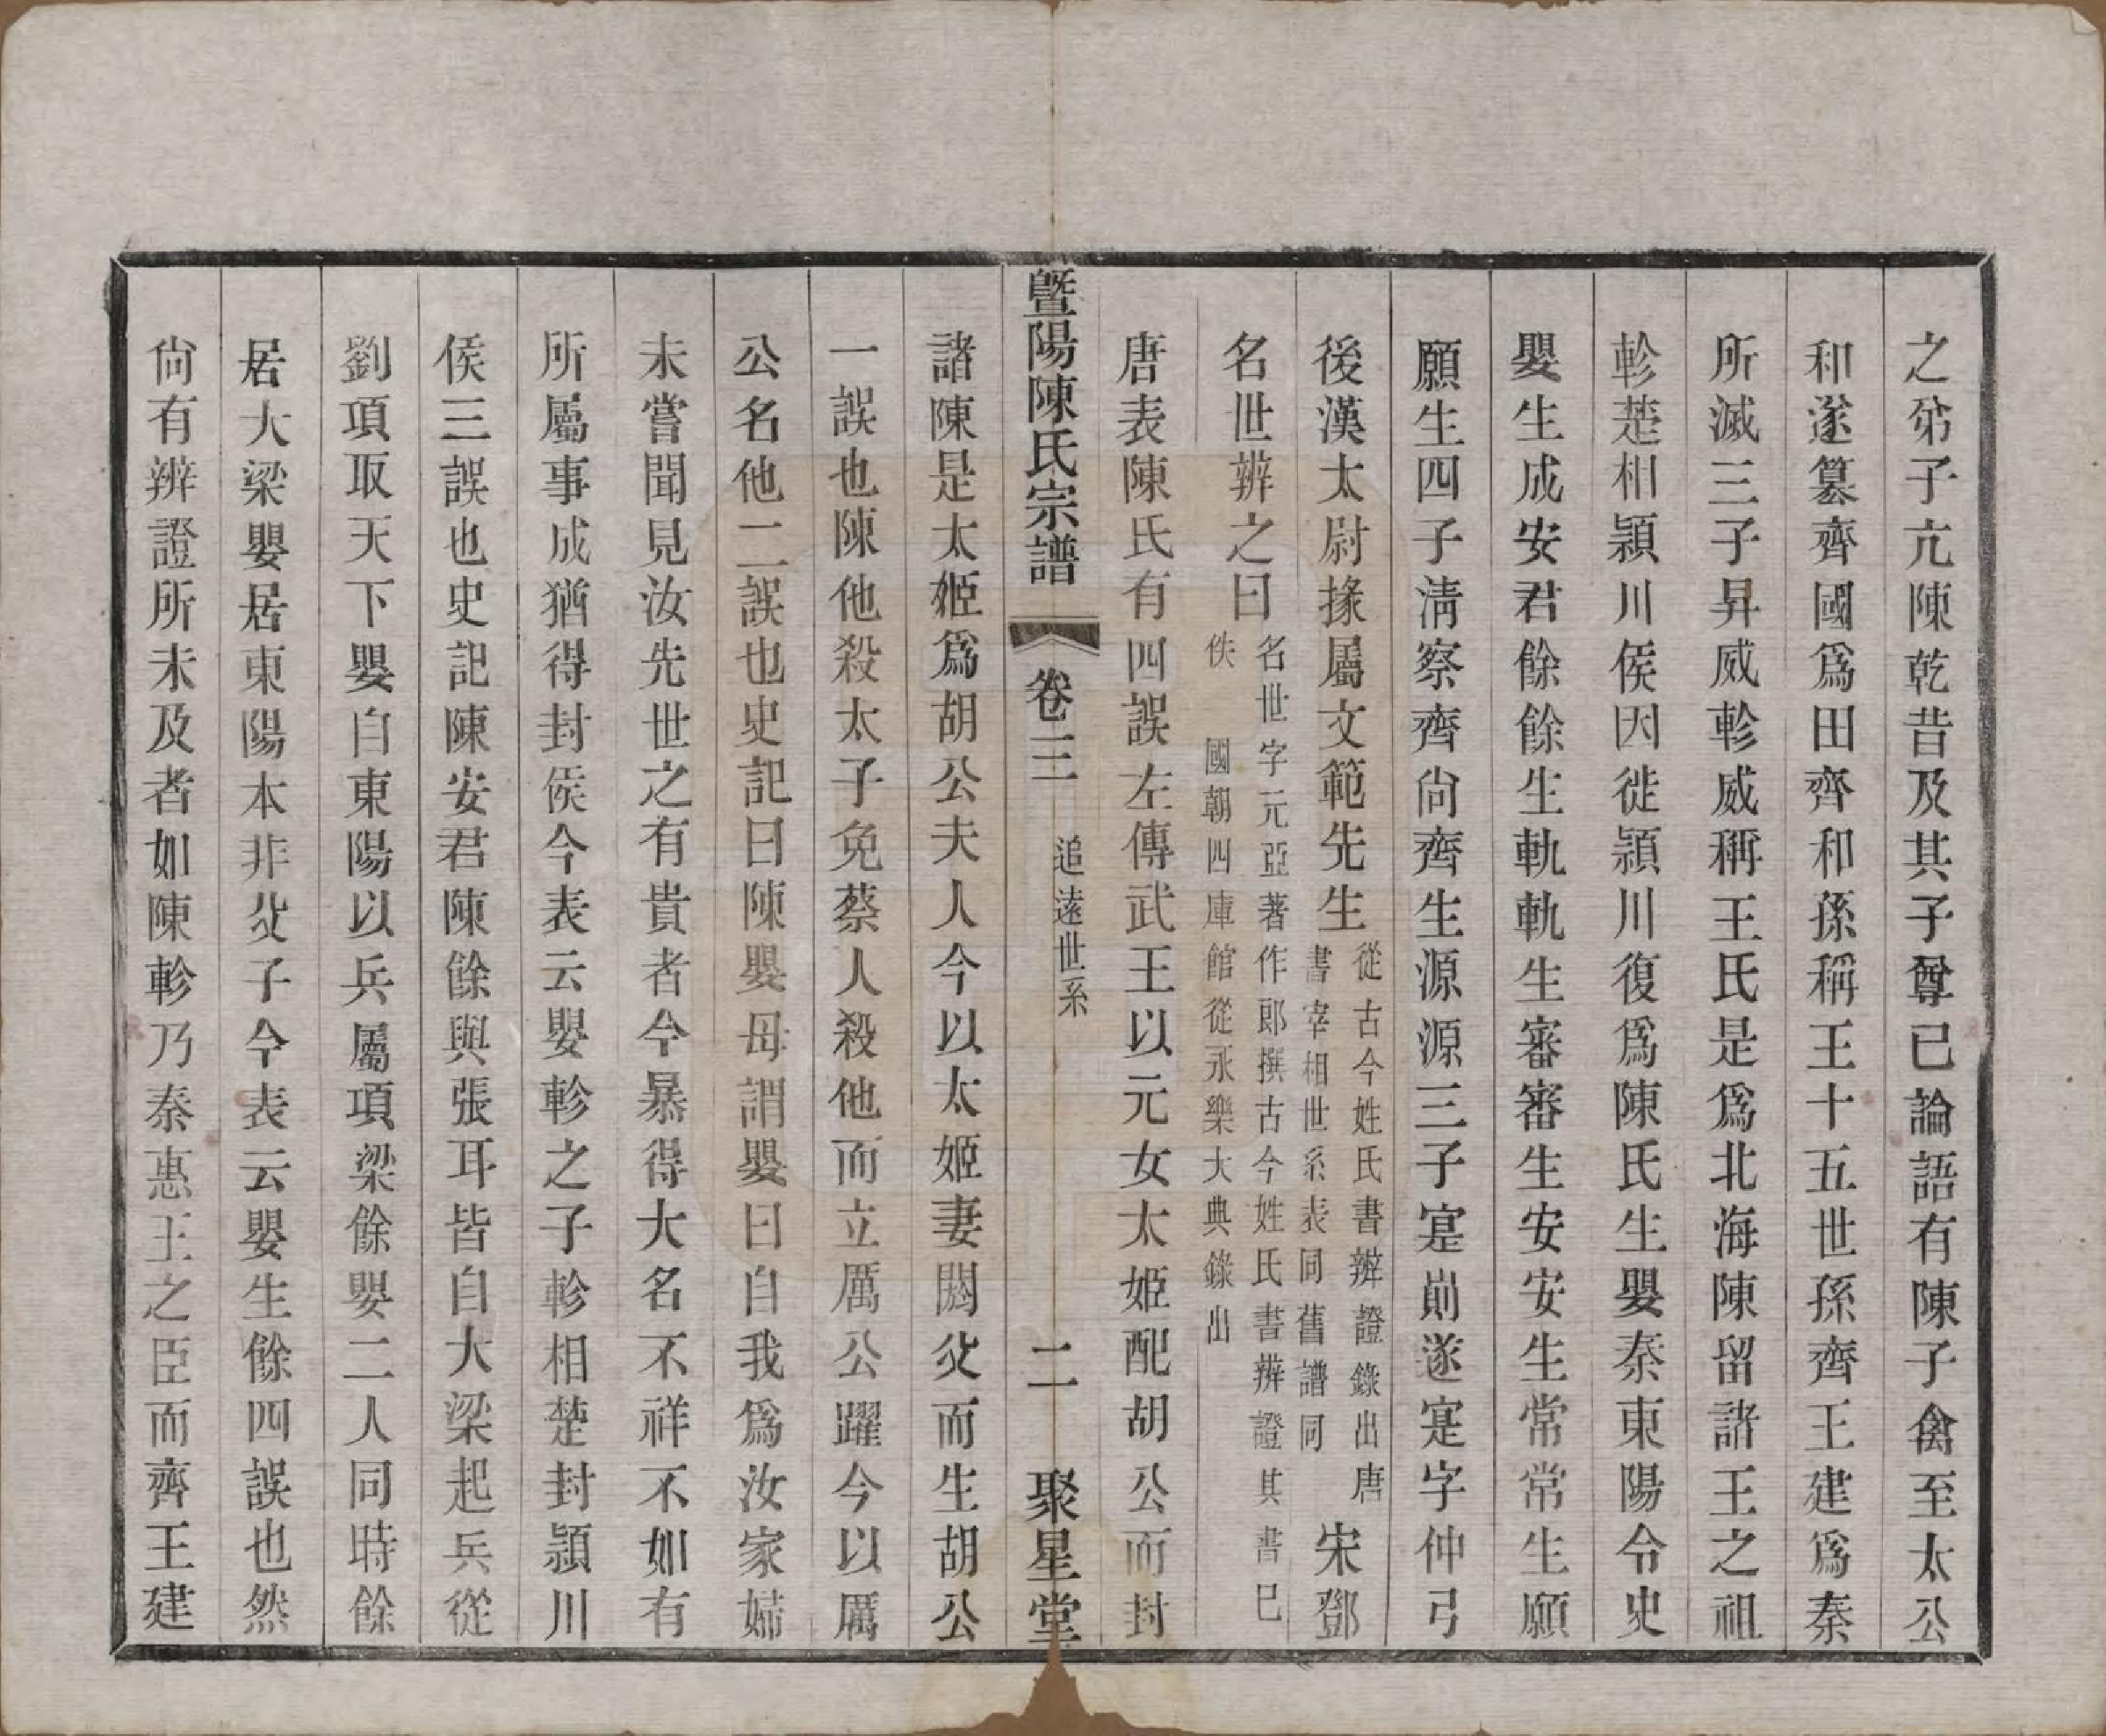 之弟子亢陳乾昔及其子尊已論語有陳子禽至太公
和遂篡齊國爲田齊和孫稱王十五世孫齊王建爲秦
所滅三子昇威軫威稱王氏是爲北海陳留諸王之祖
軫楚相潁川侯因徙潁川復爲陳氏生嬰秦東陽令史
嬰生成安君餘餘生軌軌生審審生安安生常常生願
願生四子淸察齊尙齊生源源三子寔剬遂寔字仲弓
後漢太尉掾屬文範先生
從古今姓氏書辨證錄出唐
書宰相世系表同舊譜同
宋鄧
名世辨之曰
名世字元亞著作郎撰古今姓氏書辨證其書已
佚 國朝四庫館從永樂大典錄出
唐表陳氏有四誤左傳武王以元女太姬配胡公而封
曁陽陳氏宗譜 卷三 追遠世系 二 聚星堂
諸陳是太姬爲胡公夫人今以太姬妻閼父而生胡公
一誤也陳他殺太子免蔡人殺他而立厲公躍今以厲
公名他二誤也史記曰陳嬰母謂嬰曰自我爲汝家婦
未嘗聞見汝先世之有貴者今暴得大名不祥不如有
所屬事成猶得封侯今表云嬰軫之子軫相楚封潁川
侯三誤也史記陳安君陳餘與張耳皆自大梁起兵從
劉項取天下嬰自東陽以兵屬項梁餘嬰二人同時餘
居大梁嬰居東陽本非父子今表云嬰生餘四誤也然
尙有辨證所未及者如陳軫乃秦惠王之臣而齊王建